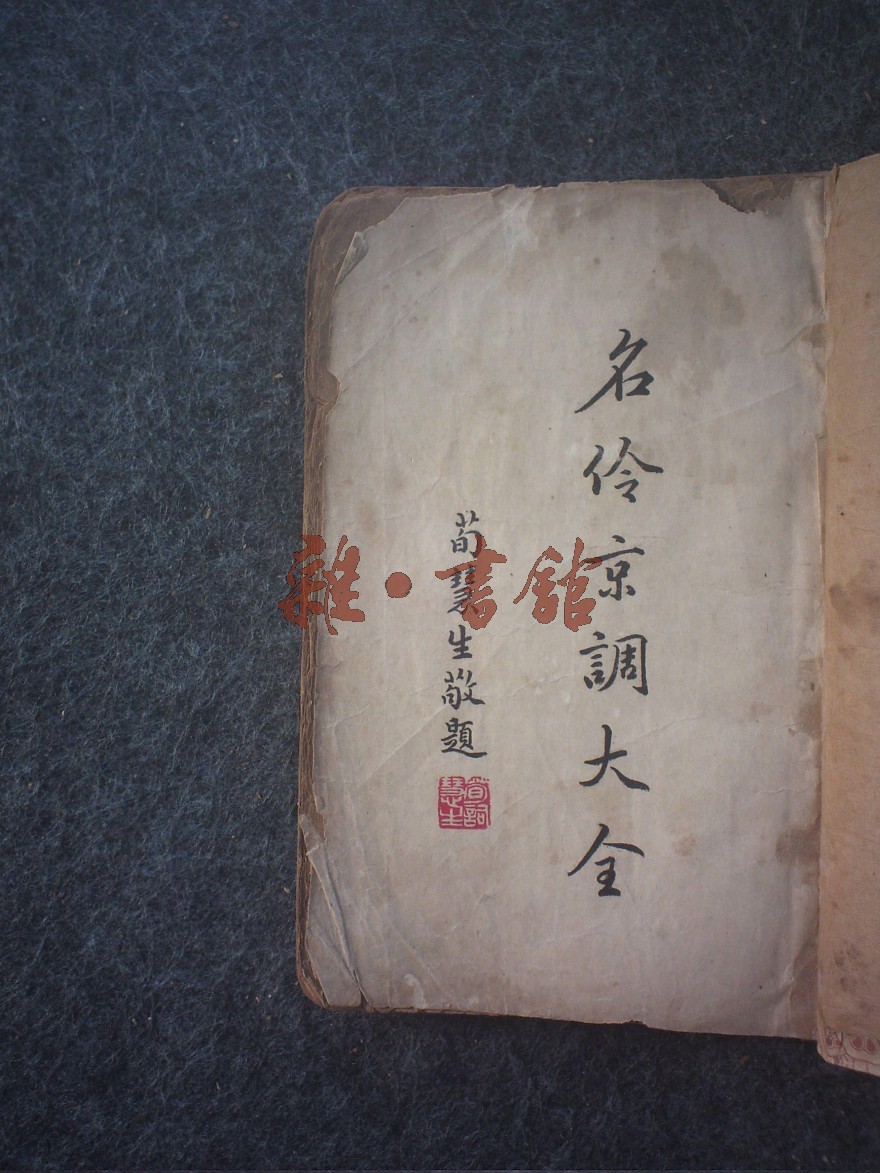 名伶京調大全
荀慧生敬題
荀詞慧生
雜·書館